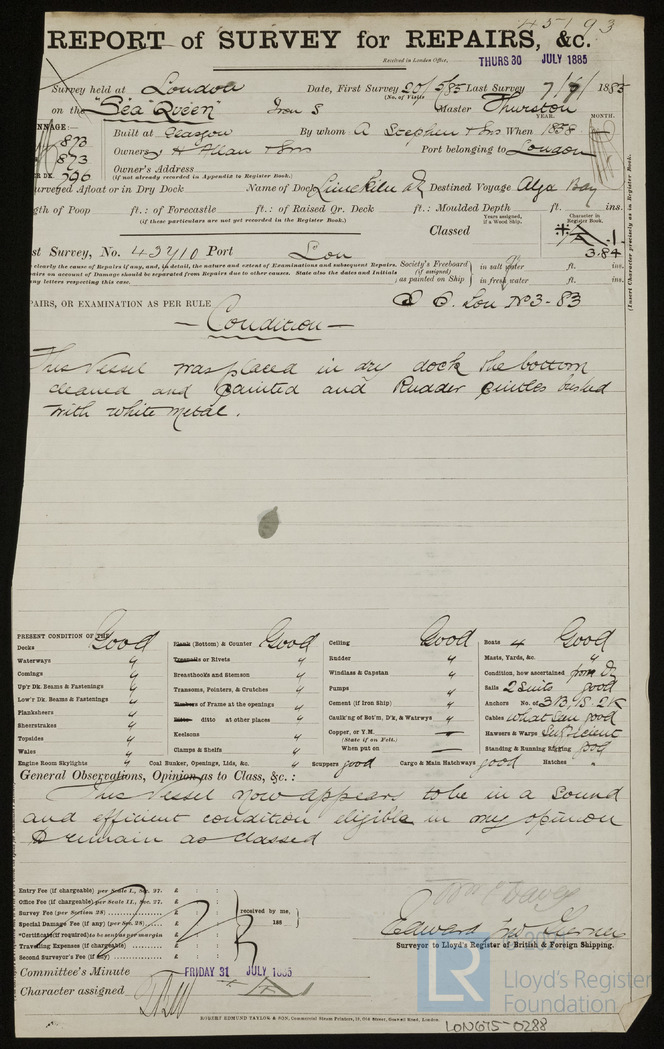 45193
REPORT of SURVEY for REPAIRS, &c.
Received in London Office, THURS 30 JULY 1885
Survey held at London Date, First Survey 20/5/85 Last Survey 7/7/ 1885
(No. of Visits
on the "Sea Queen" Iron S Master Thurston
YEAR. MONTH.
NNAGE:—
873
Built at Glasgow By whom A Stephen & Sons When 1858
873
Owners H Allan & Sons Port belonging to London
ER DK. 596
Owner's Address
(if not already recorded in Appendix to Register Book.)
urveyed Afloat or in Dry Dock Name of Dock Limekiln Destined Voyage Algoa Bay
gth of Poop ft.: of Forecastle ft.: of Raised Qr. Deck ft.: Moulded Depth ft. ins.
(if these particulars are not yet recorded in the Register Book.)
Years assigned, if a Wood Ship. Character in Register Book.
Classed A.1.
3.84
st Survey, No. 43710 Port Lon
clearly the cause of Repairs if any, and, in detail, the nature and extent of Examinations and subsequent Repairs.
pairs on account of Damage should be separated from Repairs due to other causes. State also the dates and Initials
ny letters respecting this case.
Society's Freeboard (if assigned) as painted on Ship in salt water ft. ins.
in fresh water ft. ins.
(Insert Character precisely as in Register Book.
PAIRS, OR EXAMINATION AS PER RULE S S. Lon No 3 - 83
— Condition —
This Vessel was placed in dry dock the bottom
cleaned and painted and Rudder pintles bushed
with white metal.
PRESENT CONDITION OF THE
Decks Good Plank (Bottom) & Counter Good Ceiling Good Boats 4 Good
Waterways " Treenails or Rivets " Rudder " Masts, Yards, &c. "
Comings " Breasthooks and Stemson " Windlass & Capstan " Condition, how ascertained from
Up'r Dk. Beams & Fastenings " Transoms, Pointers, & Crutches " Pumps " Sails 2 Suits good
Low'r Dk. Beams & Fastenings " Timbers of Frame at the openings " Cement (if Iron Ship) " Anchors No. of 3B, 1S, 2K
Planksheers " Ditto ditto at other places " Caulk'ng of Bot'm, D'k, & Watrwys " Cables what seen good
Sheerstrakes " Keelsons " Copper, or Y.M. — Hawsers & Warps Sufficient
(State if on Felt.)
Topsides " Clamps & Shelfs " When put on — Standing & Running Rigging good
Wales "
Engine Room Skylights " Coal Bunker, Openings, Lids, &c. " Scuppers good Cargo & Main Hatchways good Hatches "
General Observations, Opinion as to Class, &c.:
This Vessel now appears to be in a Sound
and efficient condition eligible in my opinion
to remain as classed
Entry Fee (if chargeable) per Scale I., Sec. 27. £ : :
Office Fee (if chargeable) per Scale II., Sec. 27. £ : :
Survey Fee (per Section 28) £ : :
Special Damage Fee (if any) (per Sec. 28) £ : :
*Certificate (if required) to be sent as per margin £ : :
Travelling Expenses (if chargeable) £ : :
Second Surveyor's Fee (if any) £ : :
received by me,
188
Surveyor to Lloyd's Register of British & Foreign Shipping.
Committee's Minute FRIDAY 31 JULY 1885
Character assigned
ROBERT EDMUND TAYLOR & SON, Commercial Steam Printers, 19, Old Street, Goswell Road, London.
LR
Lloyd's Register
Foundation
LON675-0288